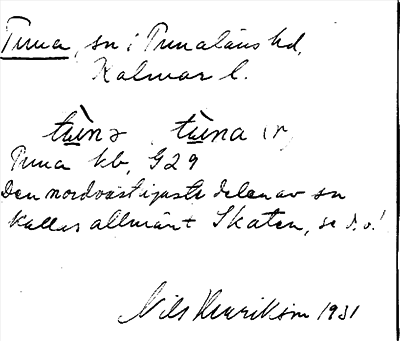 Tuna, sn i Tunaläns hd,
Kalmar l.
tùnɔ tùna (r)
Tuna kb, G29
Den nordvästligaste delen av sn
kallas allmänt Skaten, se d.o.!
Nils Henriksson 1931